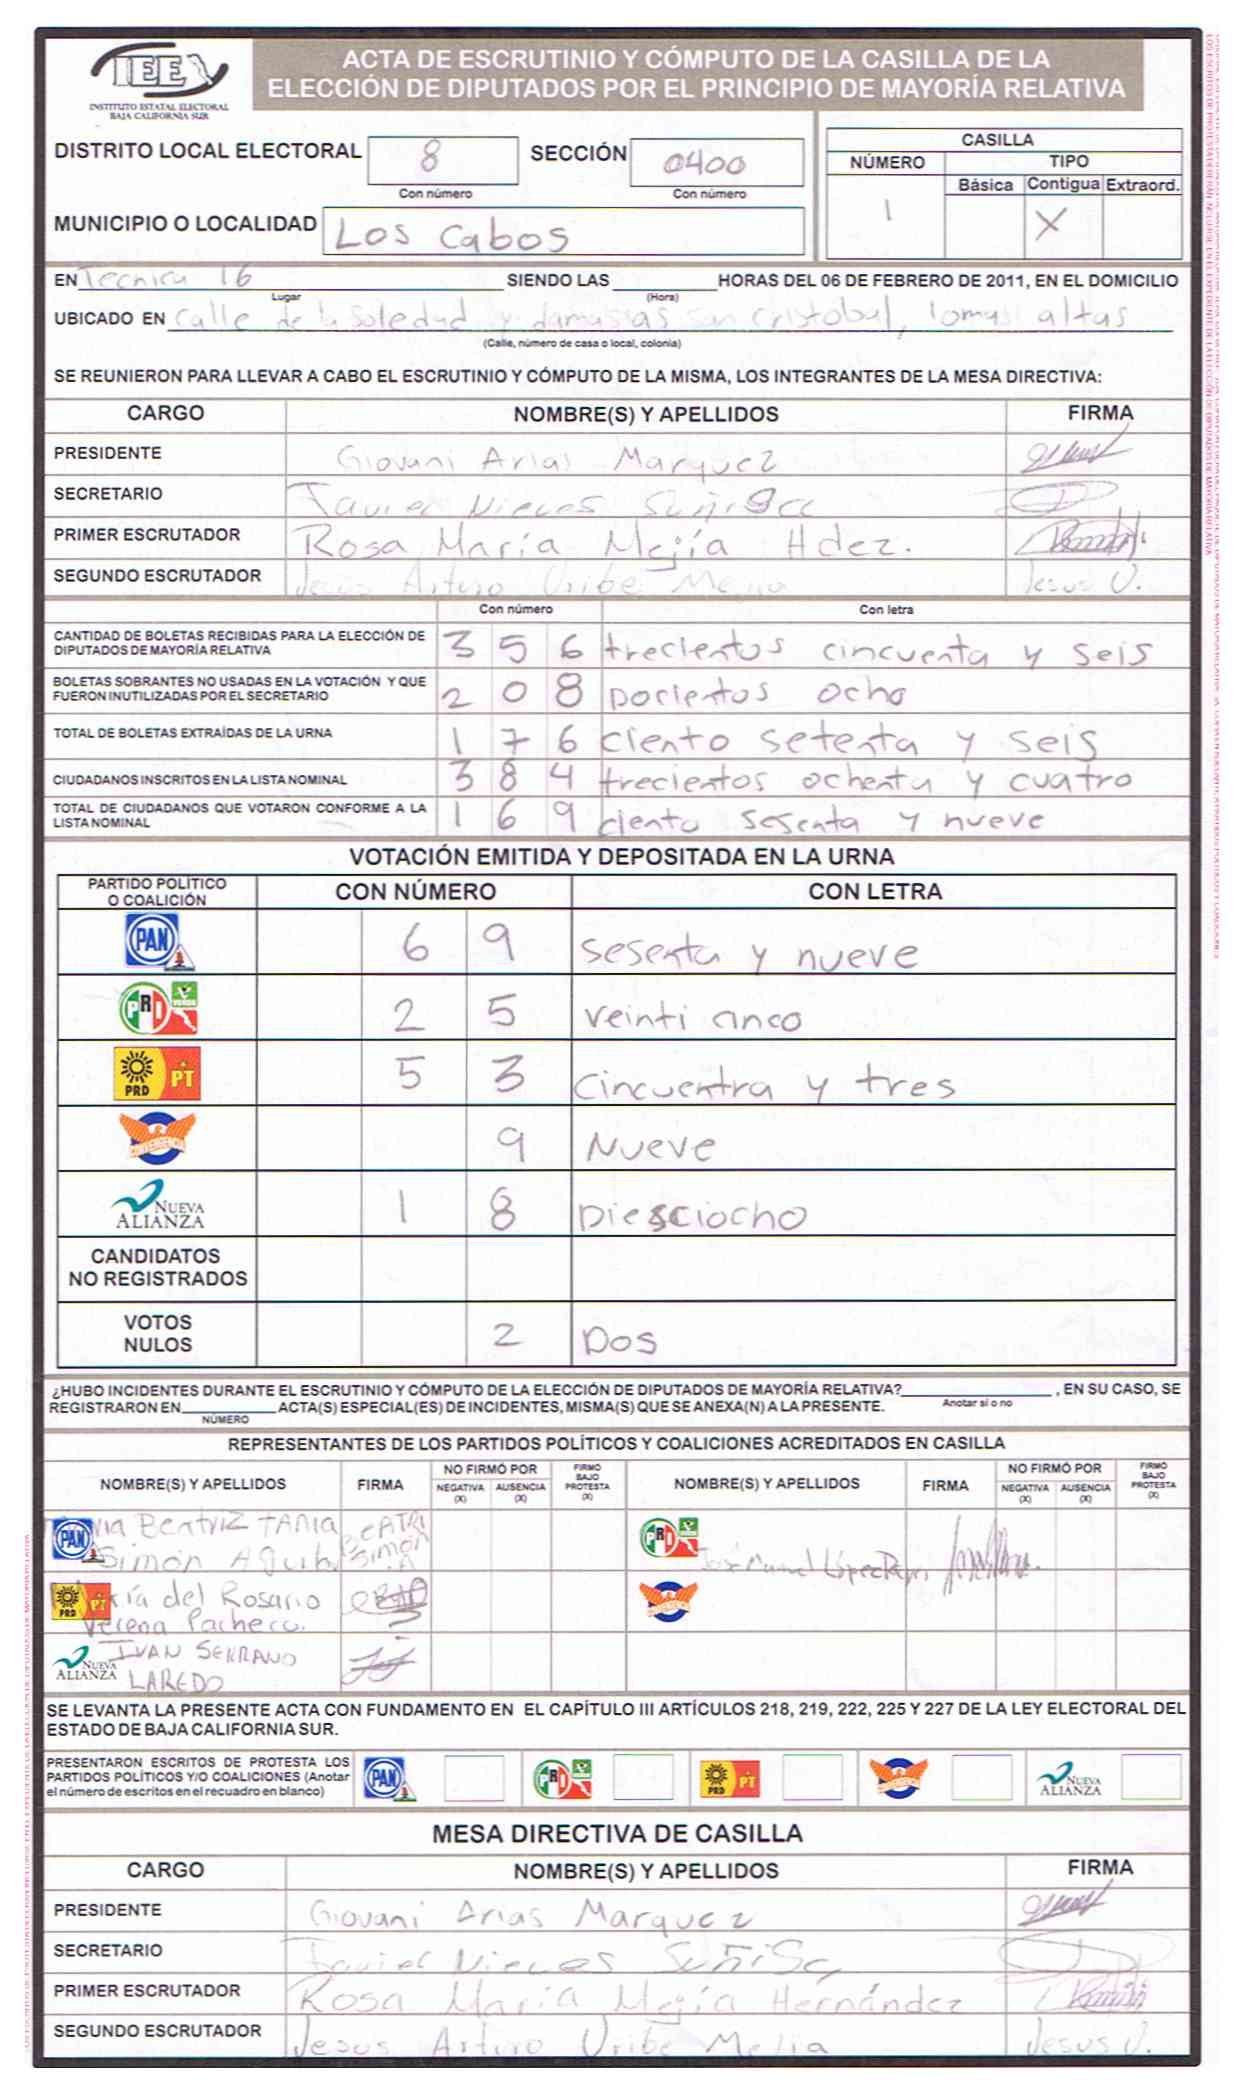 IEE
INSTITUTO ESTATAL ELECTORAL
BAJA CALIFORNIA SUR
ACTA DE ESCRUTINIO Y CÓMPUTO DE LA CASILLA DE LA
ELECCIÓN DE DIPUTADOS POR EL PRINCIPIO DE MAYORÍA RELATIVA
DISTRITO LOCAL ELECTORAL 8 SECCIÓN 0400
Con número Con número
MUNICIPIO O LOCALIDAD Los Cabos
CASILLA
NÚMERO TIPO
Básica Contigua Extraord.
1 X
EN Tecnica 16 SIENDO LAS HORAS DEL 06 DE FEBRERO DE 2011, EN EL DOMICILIO
Lugar (Hora)
UBICADO EN Calle de la Soledad y damasias san cristobal, lomas altas
(Calle, número de casa o local, colonia)
SE REUNIERON PARA LLEVAR A CABO EL ESCRUTINIO Y CÓMPUTO DE LA MISMA, LOS INTEGRANTES DE LA MESA DIRECTIVA:
CARGO NOMBRE(S) Y APELLIDOS FIRMA
PRESIDENTE Giovani Arias Marquez
SECRETARIO Javier Nieves
PRIMER ESCRUTADOR Rosa María Mejía Hdez.
SEGUNDO ESCRUTADOR Jesus Arturo Uribe Mejia Jesus U.
Con número Con letra
CANTIDAD DE BOLETAS RECIBIDAS PARA LA ELECCIÓN DE
DIPUTADOS DE MAYORÍA RELATIVA 3 5 6 trecientos cincuenta y seis
BOLETAS SOBRANTES NO USADAS EN LA VOTACIÓN Y QUE
FUERON INUTILIZADAS POR EL SECRETARIO 2 0 8 Docientos ocho
TOTAL DE BOLETAS EXTRAÍDAS DE LA URNA 1 7 6 ciento setenta y seis
CIUDADANOS INSCRITOS EN LA LISTA NOMINAL 3 8 4 trecientos ochenta y cuatro
TOTAL DE CIUDADANOS QUE VOTARON CONFORME A LA
LISTA NOMINAL 1 6 9 ciento sesenta y nueve
VOTACIÓN EMITIDA Y DEPOSITADA EN LA URNA
PARTIDO POLÍTICO
O COALICIÓN CON NÚMERO CON LETRA
PAN 6 9 sesenta y nueve
PRD VERDE 2 5 veinti cinco
PRD PT 5 3 Cincuentra y tres
CONVERGENCIA 9 Nueve
NUEVA ALIANZA 1 8 Diesciocho
CANDIDATOS
NO REGISTRADOS
VOTOS
NULOS 2 Dos
¿HUBO INCIDENTES DURANTE EL ESCRUTINIO Y CÓMPUTO DE LA ELECCIÓN DE DIPUTADOS DE MAYORÍA RELATIVA? , EN SU CASO, SE
Anotar si o no
REGISTRARON EN ACTA(S) ESPECIAL(ES) DE INCIDENTES, MISMA(S) QUE SE ANEXA(N) A LA PRESENTE.
NÚMERO
REPRESENTANTES DE LOS PARTIDOS POLÍTICOS Y COALICIONES ACREDITADOS EN CASILLA
NOMBRE(S) Y APELLIDOS FIRMA NO FIRMÓ POR NEGATIVA (X) AUSENCIA (X) FIRMÓ BAJO PROTESTA (X) NOMBRE(S) Y APELLIDOS FIRMA NO FIRMÓ POR NEGATIVA (X) AUSENCIA (X) FIRMÓ BAJO PROTESTA (X)
PAN BEATRIZ TANIA PRD VERDE José Manuel López
Simón
PRD PT María del Rosario CONVERGENCIA
Verena Pacheco.
NUEVA ALIANZA IVAN SERRANO
LAREDO
SE LEVANTA LA PRESENTE ACTA CON FUNDAMENTO EN EL CAPÍTULO III ARTÍCULOS 218, 219, 222, 225 Y 227 DE LA LEY ELECTORAL DEL
ESTADO DE BAJA CALIFORNIA SUR.
PRESENTARON ESCRITOS DE PROTESTA LOS
PARTIDOS POLÍTICOS Y/O COALICIONES (Anotar
el número de escritos en el recuadro en blanco)
PAN PRD VERDE PRD PT CONVERGENCIA NUEVA ALIANZA
MESA DIRECTIVA DE CASILLA
CARGO NOMBRE(S) Y APELLIDOS FIRMA
PRESIDENTE Giovani Arias Marquez
SECRETARIO Javier Nieves
PRIMER ESCRUTADOR Rosa María Mejía Hernández
SEGUNDO ESCRUTADOR Jesus Arturo Uribe Mejia Jesus U.